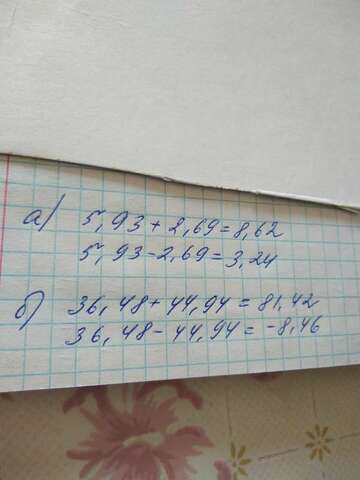 а) 5,93+2,69=8,62
5,93-2,69=3,24
б) 36,48+44,94=81,42
36,48-44,94=-8,46